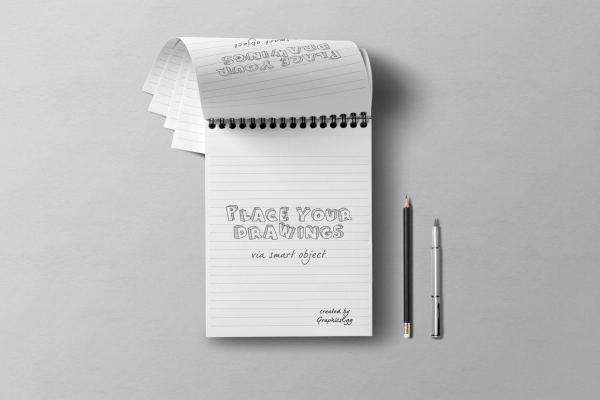 smart object
DRAWINGS
PLACE YOUR
PLACE YOUR
DRAWINGS
via smart object
created by
GraphicsEgg